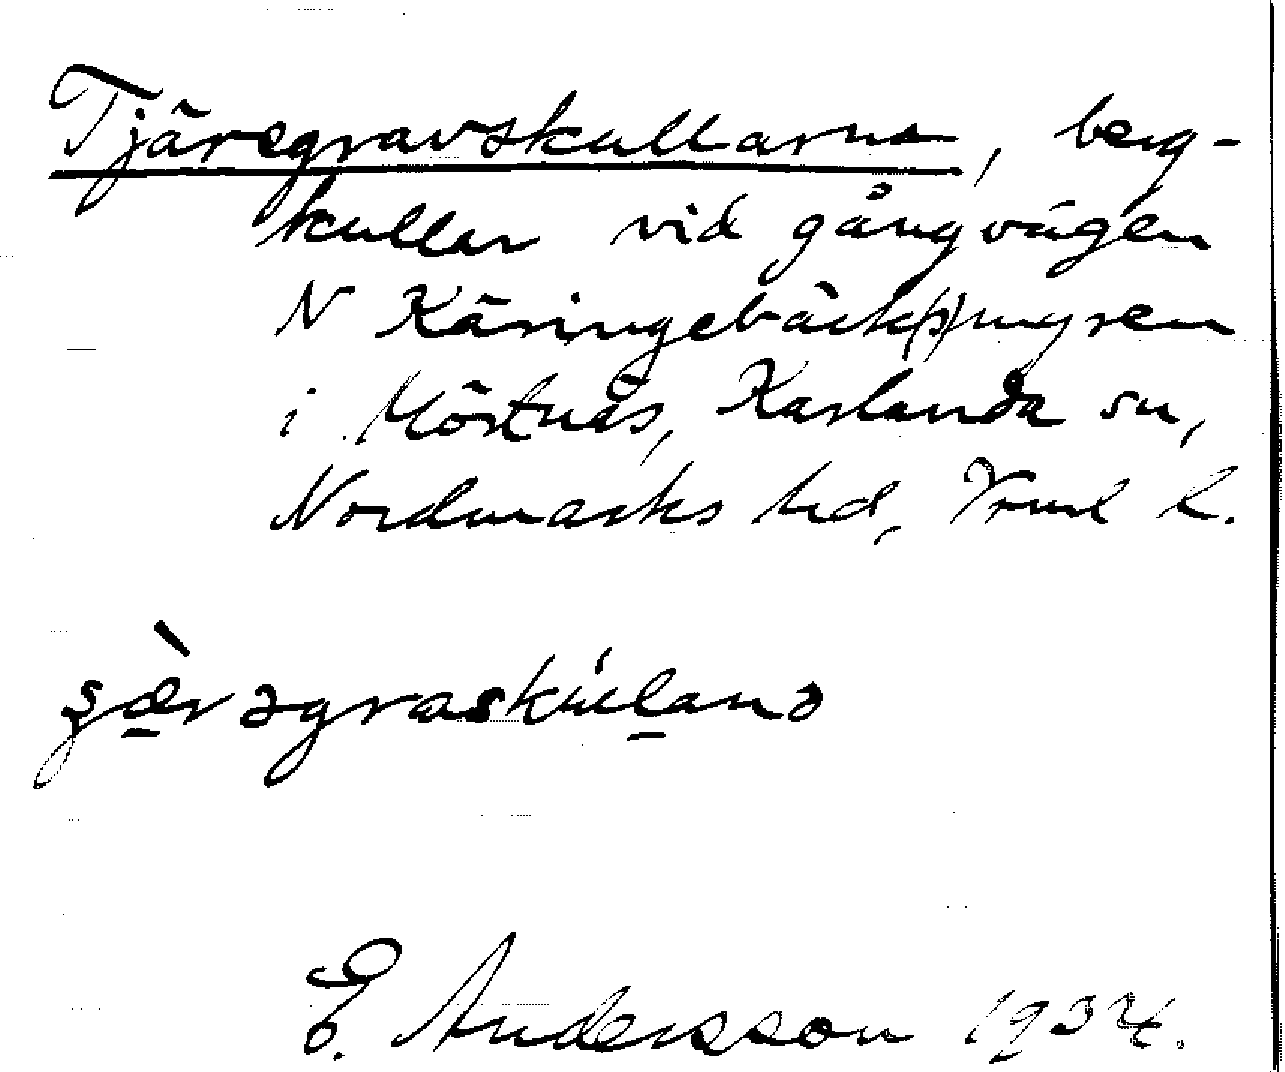 Tjäregravskullarna, berg-
kullar vid gångvägen
N Käringebäck(s)myren
i Mörtnäs, Karlanda sn,
Nordmarks hd, Vrml l.
E. Andersson 1934.